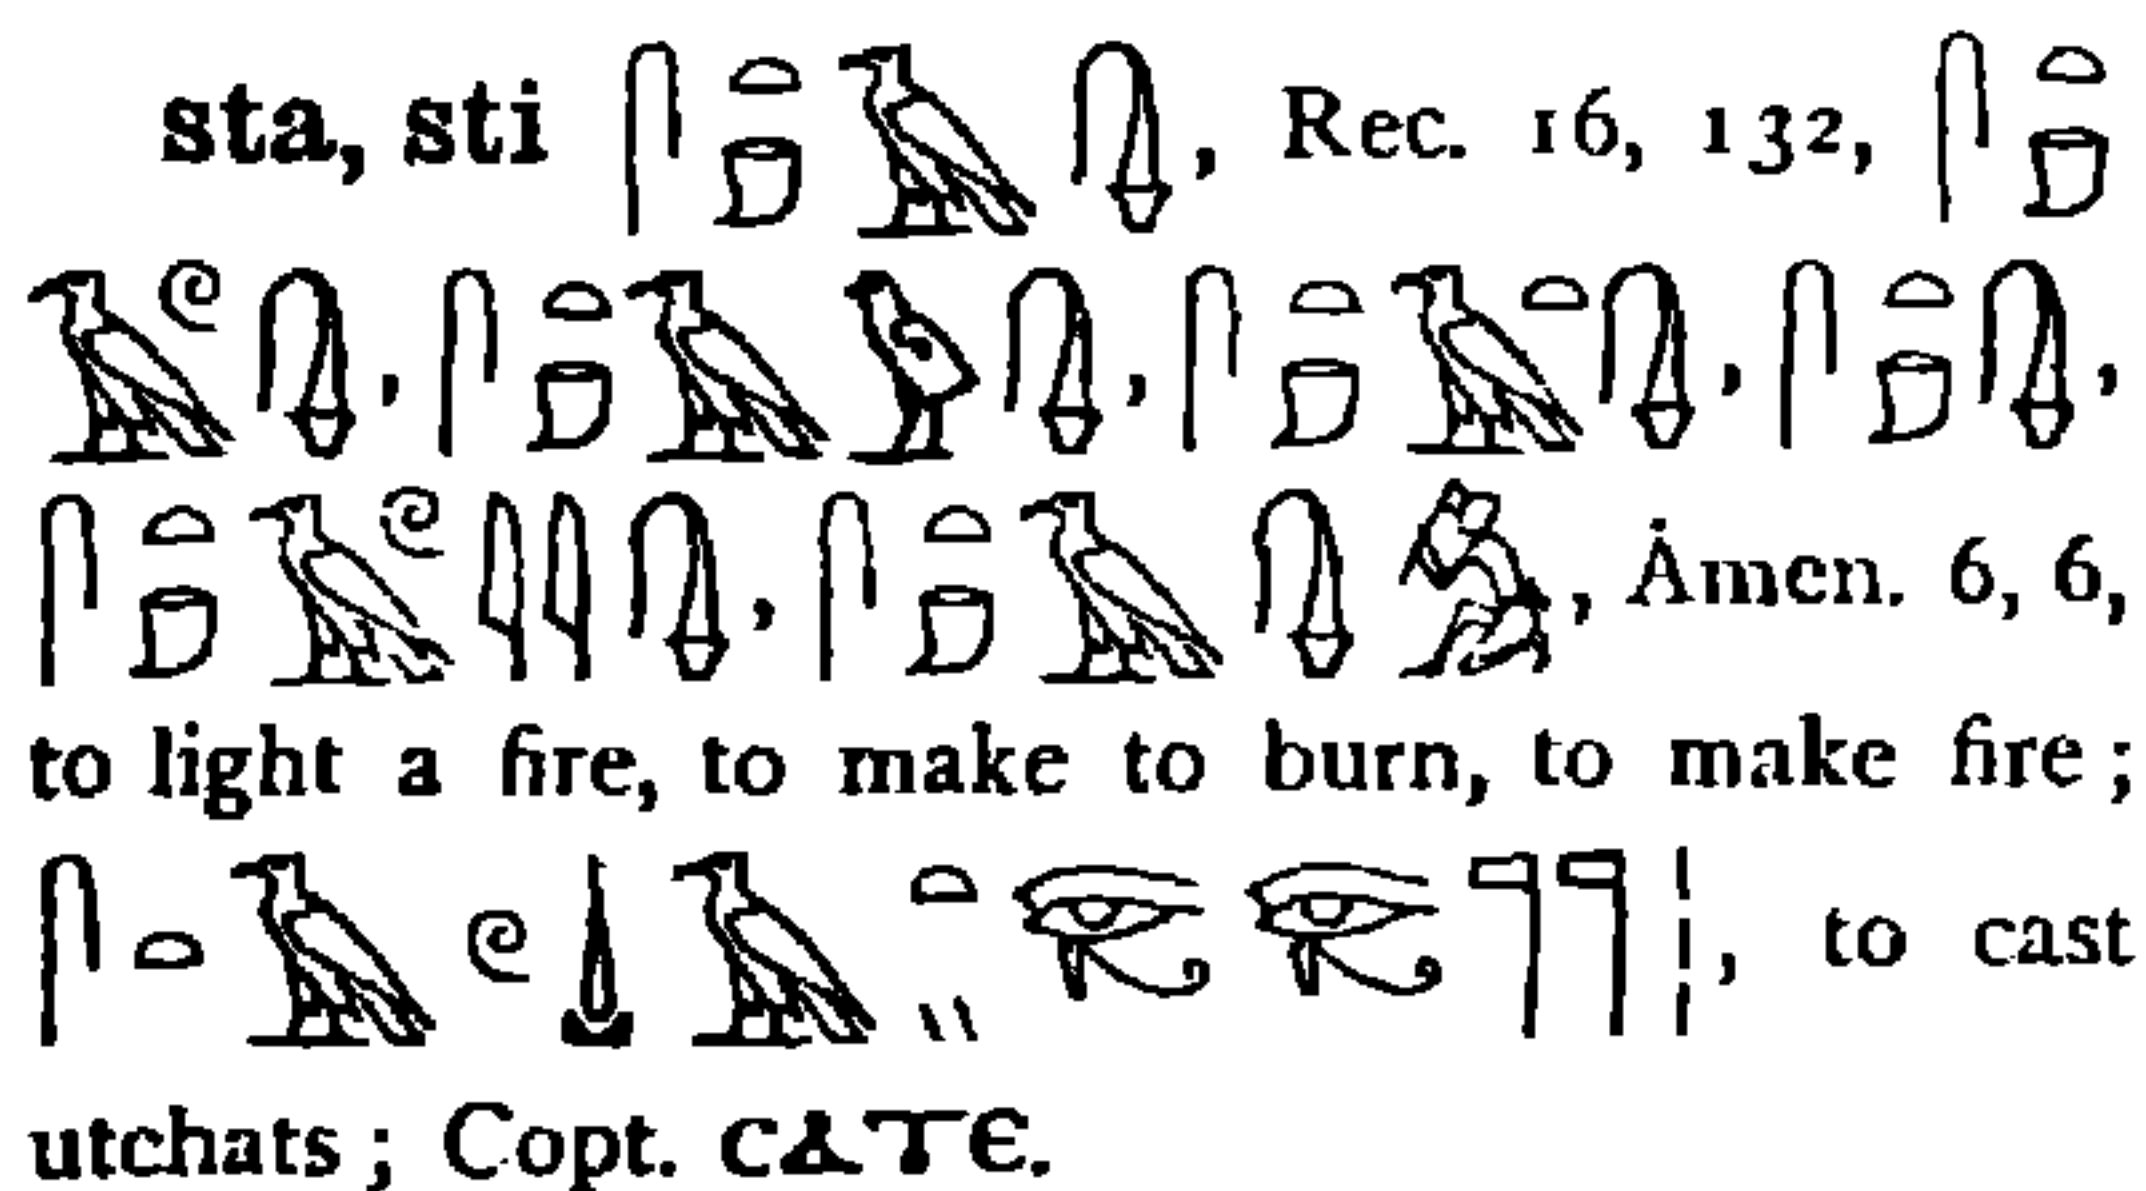 sta, sti 𓋴𓏏𓍔𓄿𓊮, Rec. 16, 132, 𓋴𓏏𓍔
𓄿𓏲𓊮, 𓋴𓏏𓍔𓄿𓅱𓊮, 𓋴𓏏𓍔𓄿𓏏𓊮, 𓋴𓏏𓍔𓊮,
𓋴𓏏𓍔𓄿𓏲𓇌𓊮, 𓋴𓏏𓍔𓄿𓊮𓀁, Ȧmen. 6, 6,
to light a fire, to make to burn, to make fire;
𓋴𓏏𓄿𓏲𓍑𓄿𓏏𓏭𓂀𓂀𓊹𓊹𓏪, to cast
utchats; Copt. ⲥⲁⲧⲉ.